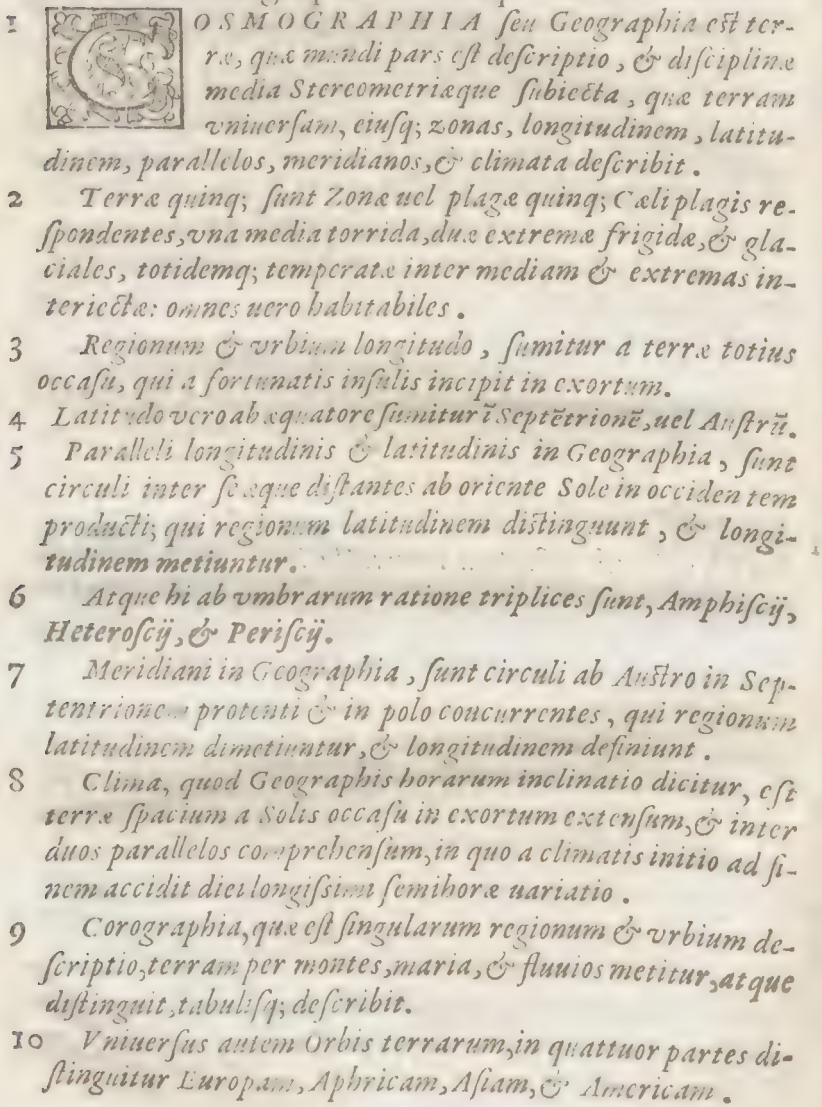 1 COSMOGRAPHIA ſeu Geographia eſt ter-
ræ, quæ mundi pars eſt deſcriptio, & diſciplinæ
media Stereometriæque ſubiecta, quæ terram
vniuerſam, eiuſq; zonas, longitudinem, latitu-
dinem, parallelos, meridianos, & climata deſcribit.
2 Terræ quinq; ſunt Zonæ uel plagæ quinq; Cæli plagis re-
ſpondentes, vna media torrida, duæ extremæ frigidæ, & gla-
ciales, totidemq; temperatæ inter mediam & extremas in-
teriectæ: omnes uero habitabiles.
3 Regionum & vrbium longitudo, ſumitur a terræ totius
occaſu, qui a fortunatis inſulis incipit in exortum.
4 Latitudo vero ab æquatore ſumitur ī Septētrionē, uel Auſtrū.
5 Paralleli longitudinis & latitudinis in Geographia, ſunt
circuli inter ſe æque diſtantes ab oriente Sole in occiden tem
producti; qui regionum latitudinem diſtinguunt, & longi-
tudinem metiuntur.
6 Atque hi ab vmbrarum ratione triplices ſunt, Amphiſcij,
Heteroſcij, & Periſcij.
7 Meridiani in Geographia, ſunt circuli ab Auſtro in Sep-
tentrionem protenti & in polo concurrentes, qui regionum
latitudinem dimetiuntur, & longitudinem definiunt.
8 Clima, quod Geographis horarum inclinatio dicitur, eſt
terræ ſpacium a Solis occaſu in exortum extenſum, & inter
duos parallelos comprehenſum, in quo a climatis initio ad fi-
nem accidit diei longiſsimi ſemihoræ uariatio.
9 Corographia, quæ eſt ſingularum regionum & vrbium de-
ſcriptio, terram per montes, maria, & fluuios metitur, atque
diſtinguit, tabuliſq; deſcribit.
10 Vniuerſus autem Orbis terrarum, in quattuor partes di-
ſtinguitur Europam, Aphricam, Aſiam, & Americam.